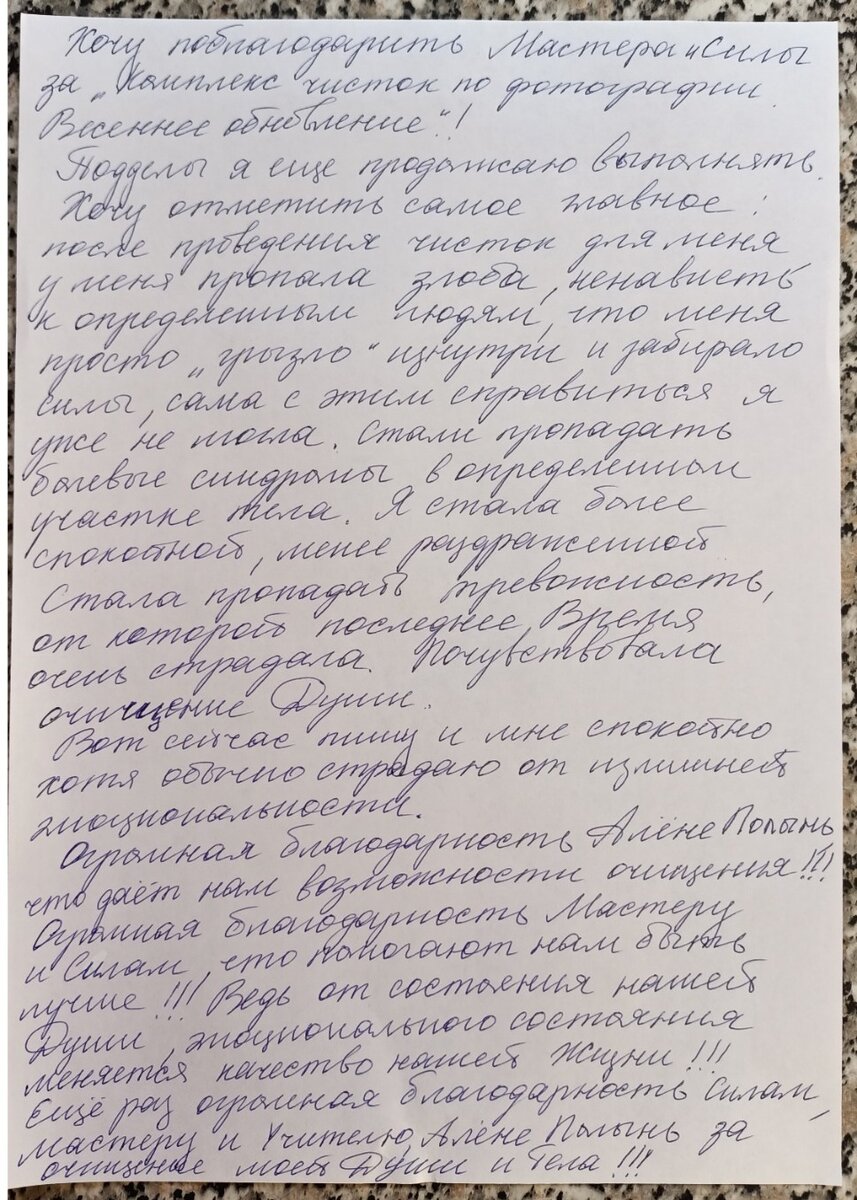 Хочу поблагодарить Мастера и Силы
за „Комплекс чисток по фотографии
Весеннее обновление"!
Подделы я еще продолжаю выполнять.
Хочу отметить самое главное:
после проведения чисток для меня
у меня пропала злоба, ненависть
к определенным людям, что меня
просто „грызло" изнутри и забирало
силы, сама с этим справиться я
уже не могла. Стали пропадать
болевые синдромы в определенном
участке тела. Я стала более
спокойной, менее раздраженной
Стала пропадать тревожность,
от которой последнее Время
очень страдала. Почувствовала
очищение Души.
Вот сейчас пишу и мне спокойно
хотя обычно страдаю от излишней
эмоциональности.
Огромная благодарность Алёне Полынь
что даёт нам возможности очищения!!!
Огромная благодарность Мастеру
и Силам, что помогают нам быть
лучше!!! Ведь от состояния нашей
Души, эмоционального состояния
меняется качество нашей Жизни!!!
Ещё раз огромная благодарность Силам,
Мастеру и Учителю, Алёне Полынь за
очищение моей Души и Тела!!!